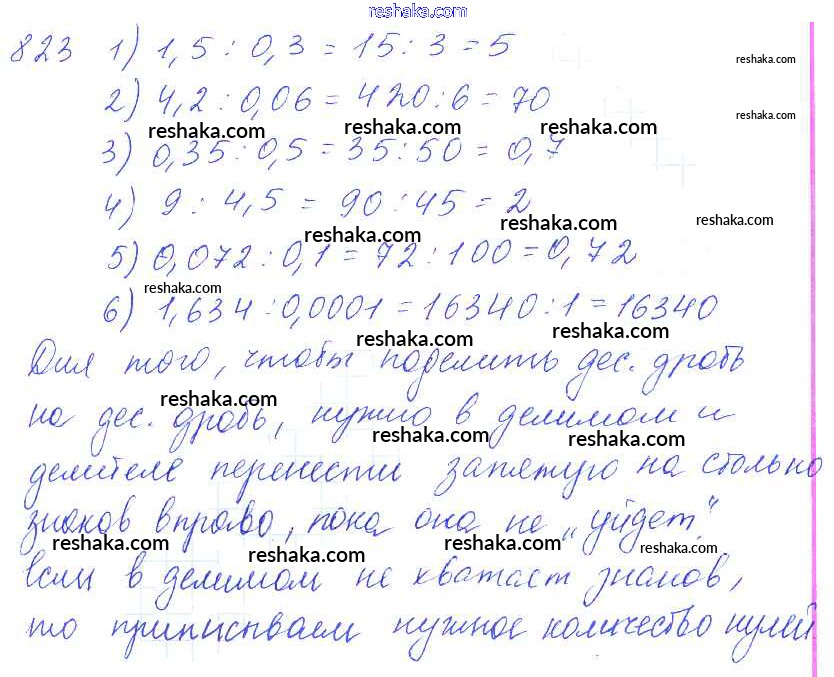 reshaka.com
823 1) 1,5 : 0,3 = 15 : 3 = 5
reshaka.com
2) 4,2 : 0,06 = 420 : 6 = 70
reshaka.com
reshaka.com reshaka.com reshaka.com
3) 0,35 : 0,5 = 35 : 50 = 0,7
4) 9 : 4,5 = 90 : 45 = 2
reshaka.com reshaka.com reshaka.com
5) 0,072 : 0,1 = 72 : 100 = 0,72
reshaka.com
6) 1,634 : 0,0001 = 16340 : 1 = 16340
reshaka.com reshaka.com
Для того, чтобы поделить дес. дробь
reshaka.com
на дес. дробь, нужно в делимом и
reshaka.com reshaka.com
делителе перенести запятую на столько
знаков вправо, пока она не „уйдет"
reshaka.com reshaka.com reshaka.com
Если в делимом не хватает знаков,
то приписываем нужное количество нулей